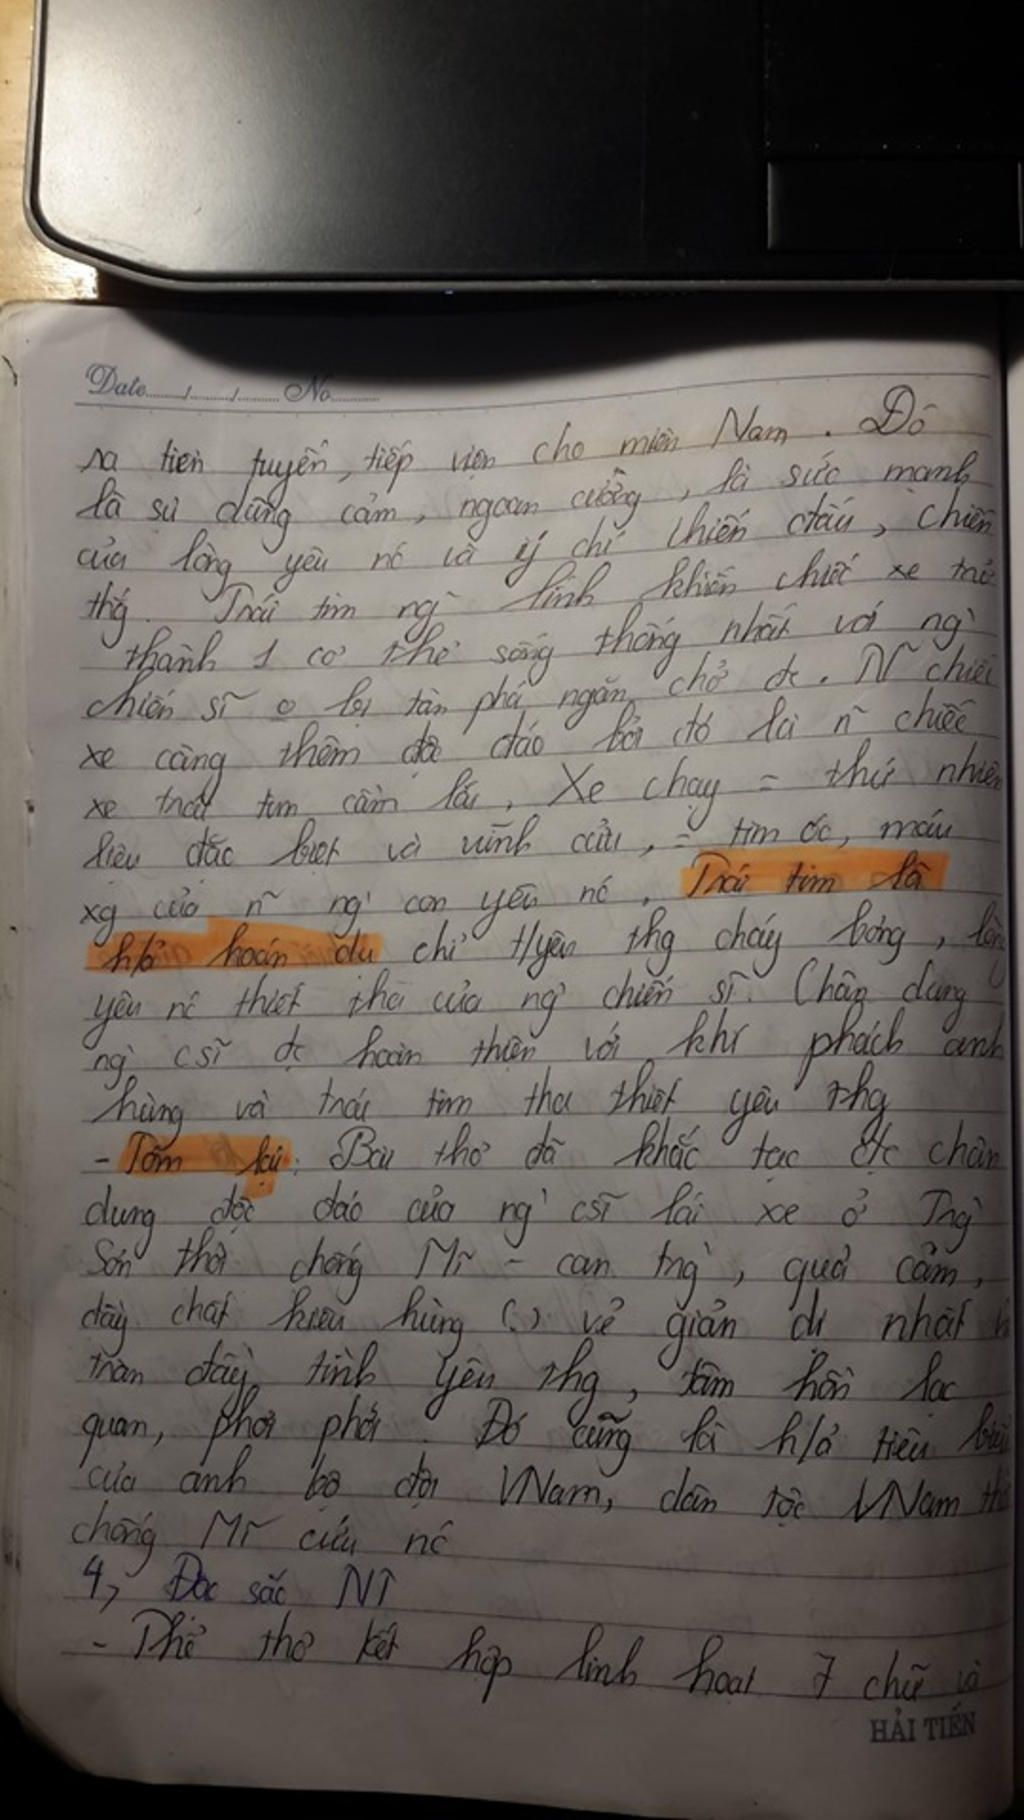 Date No
ra tiền tuyến, tiếp viện cho miền Nam. Đó
là sự dũng cảm, ngoan cường, là sức mạnh
của lòng yêu nc và ý chí chiến đấu, chiến
thg. Trái tim ng` lính khiến chiếc xe trở
thành 1 cơ thể sống thống nhất với ng`
chiến sĩ o tàn phá ngăn chở đc. N~ chiếc
xe càng thêm độc đáo bởi đó là n~ chiếc
xe trái tim cầm lái. Xe chạy = thứ nhiên
liệu đặc biệt và vĩnh cửu, = tim óc, máu
xg của n~ ng` con yêu nc. Trái tim là
h/ả hoán dụ chỉ t/yêu thg cháy bỏng, lòng
yêu nc thiết tha của ng` chiến sĩ. Chân dung
ng` csĩ đc hoàn thiện với khí phách anh
hùng và trái tim tha thiết yêu thg
- Tóm lại: Bài thơ đã khắc tạc đc chân
dung độc đáo của ng` csĩ lái xe ở Trg`
Sơn thời chống Mĩ - can trg`, quả cảm,
đầy chất kiêu hùng (.) vẻ giản dị nhất
tràn đầy tình yêu thg, tâm hồn lạc
quan, phơi phới. Đó cũng là h/ả tiêu biểu
của anh bộ đội VNam, dân tộc VNam
chống Mĩ cứu nc
4, Đặc sắc NT
- Thể thơ kết hợp linh hoạt 7 chữ và
HẢI TIẾN